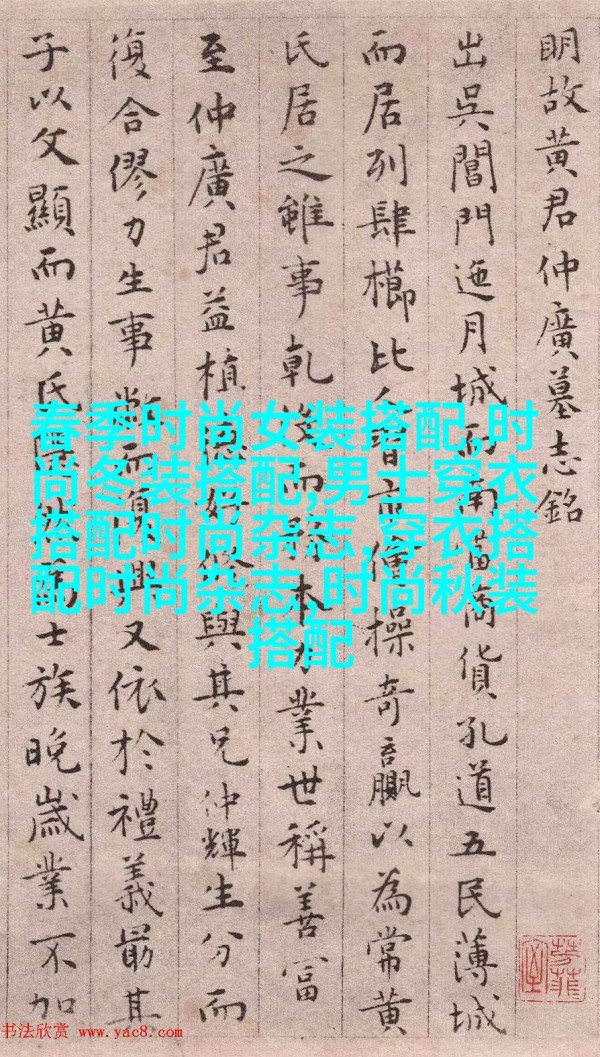 明故黄君仲廣墓志銘
出吳閶門迤月城而南商貨孔道五民薄城
而居列肆櫛比操奇贏以為常黄
氏居之雖事乾而務本力業世稱善富
至仲廣君益植德好與其兄仲輝生分而
復合僇力生事而復興又依於禮義最其
子以文顯而黄氏士族晚歲業不加
春季时尚女装搭配,时
尚冬装搭配,男士穿衣
搭配时尚杂志,穿衣搭
配时尚杂志,时尚秋装
搭配
书法欣赏 www.yac8.com